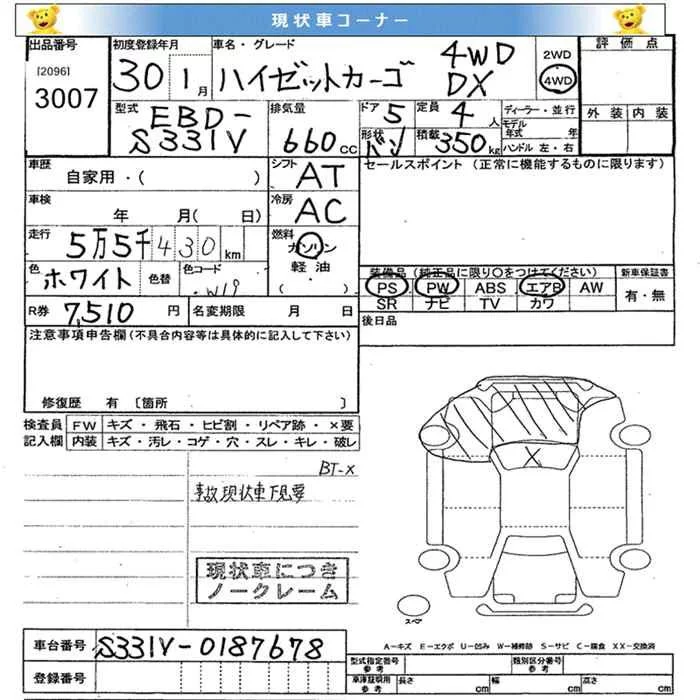 現状車コーナー
出品番号 初度登録年月 車名・グレード 評価点
[2096] 3007 30 1月 ハイゼットカーゴ 4WD DX 2WD 4WD
型式 EBD-S331V 排気量 660cc ドア 5 定員 4人 ディーラー・並行 外装 内装
形状 バン 積載 350kg モデル年式 年 ハンドル 左・右
車歴 自家用・( ) シフト AT セールスポイント(正常に機能するものに限ります)
車検 年 月( 日) 冷房 AC
走行 5万5千430km 燃料 ガソリン 軽油・( )
色 ホワイト 色替 色コード W19 装備品(純正品に限り○をつけてください) 新車保証書
PS PW ABS エアB AW 有・無
SR ナビ TV カワ
R券 7,510円 名変期限 月 日 後日品
注意事項申告欄(不具合内容等は具体的に記入して下さい)
修復歴 有〔箇所 〕
検査員 FW キズ・飛石・ヒビ割・リペア跡・×要
記入欄 内装 キズ・汚レ・コゲ・穴・スレ・キレ・破レ
BT-X
事故現状車下見要
X
現状車につき
ノークレーム
スペア
車台番号 S331V-0187678 A-キズ E-エクボ U-凹み W-補修跡 S-サビ C-腐食 XX-交換済
登録番号 型式指定番号 参考 類別区分番号 参考
車庫証明用 参考 長さ cm 幅 cm 高さ cm